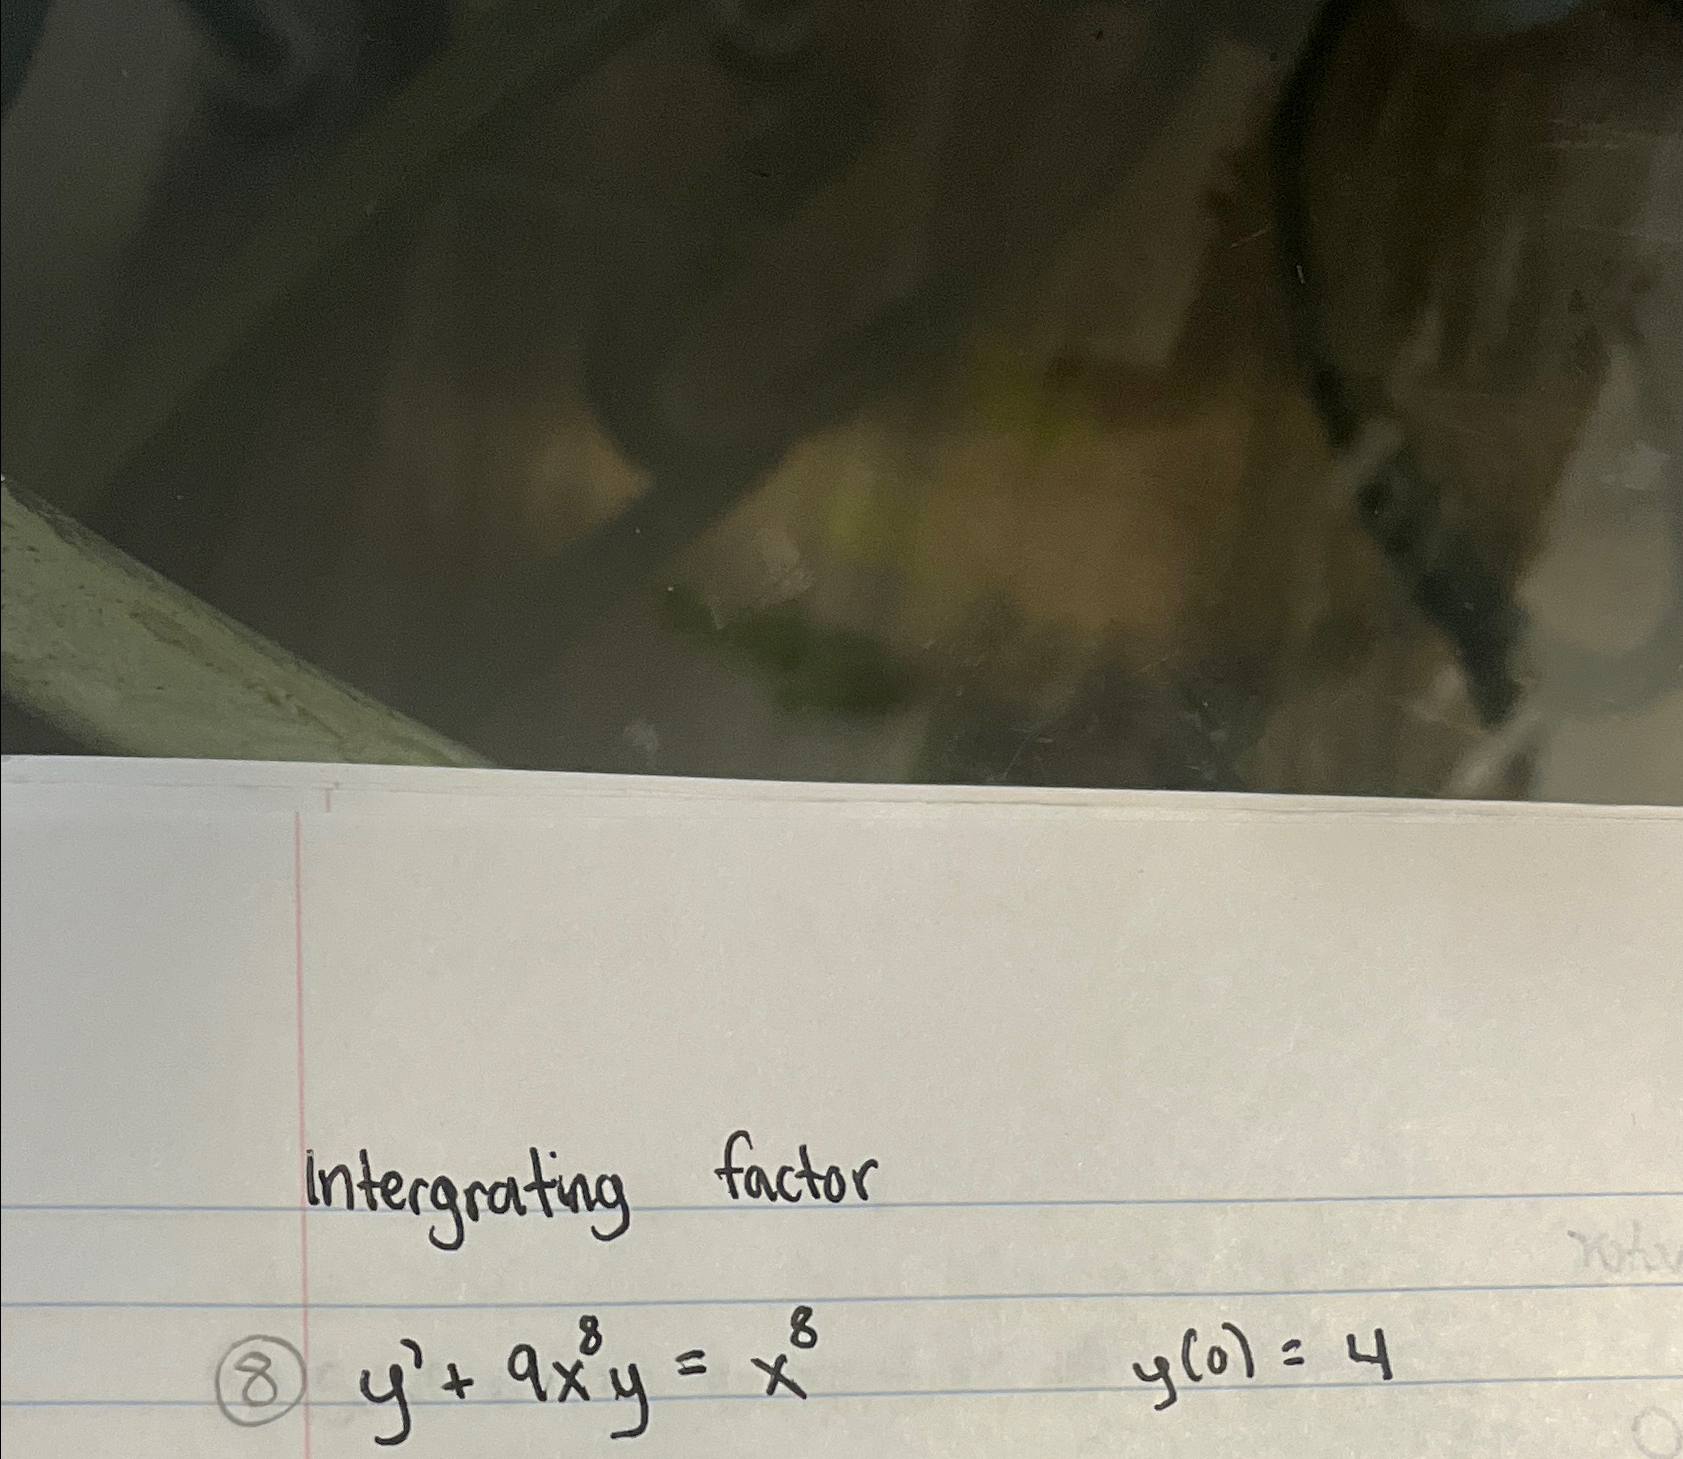 Intergrating factor
⑧ y' + 9x⁸y = x⁸ y(0) = 4